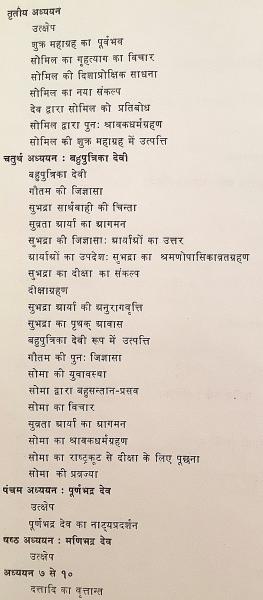 तृतीय अध्ययन
उत्क्षेप
शुक्र महाग्रह का पूर्वभव
सोमिल का गृहत्याग का विचार
सोमिल की दिशाप्रोक्षिक साधना
सोमिल का नया संकल्प
देव द्वारा सोमिल को प्रतिबोध
सोमिल द्वारा पुनः श्रावकधर्मग्रहण
सोमिल की शुक्र महाग्रह में उत्पत्ति
चतुर्थ अध्ययन : बहुपुत्रिका देवी
बहुपुत्रिका देवी
गौतम की जिज्ञासा
सुभद्रा सार्थवाही की चिन्ता
सुव्रता आर्या का आगमन
सुभद्रा की जिज्ञासा: आर्याओं का उत्तर
आर्याओं का उपदेश: सुभद्रा का श्रमणोपासिकाव्रतग्रहण
सुभद्रा का दीक्षा का संकल्प
दीक्षाग्रहण
सुभद्रा आर्या की अनुरागवृत्ति
सुभद्रा का पृथक् आवास
बहुपुत्रिका देवी रूप में उत्पत्ति
गौतम की पुनः जिज्ञासा
सोमा की युवावस्था
सोमा द्वारा बहुसन्तान-प्रसव
सोमा का विचार
सुव्रता आर्या का आगमन
सोमा का श्रावकधर्मग्रहण
सोमा का राष्ट्रकूट से दीक्षा के लिए पूछना
सोमा की प्रव्रज्या
पंचम अध्ययन : पूर्णभद्र देव
उत्क्षेप
पूर्णभद्र देव का नाट्यप्रदर्शन
षष्ठ अध्ययन : मणिभद्र देव
उत्क्षेप
अध्ययन ७ से १०
दत्तादि का वृत्तान्त